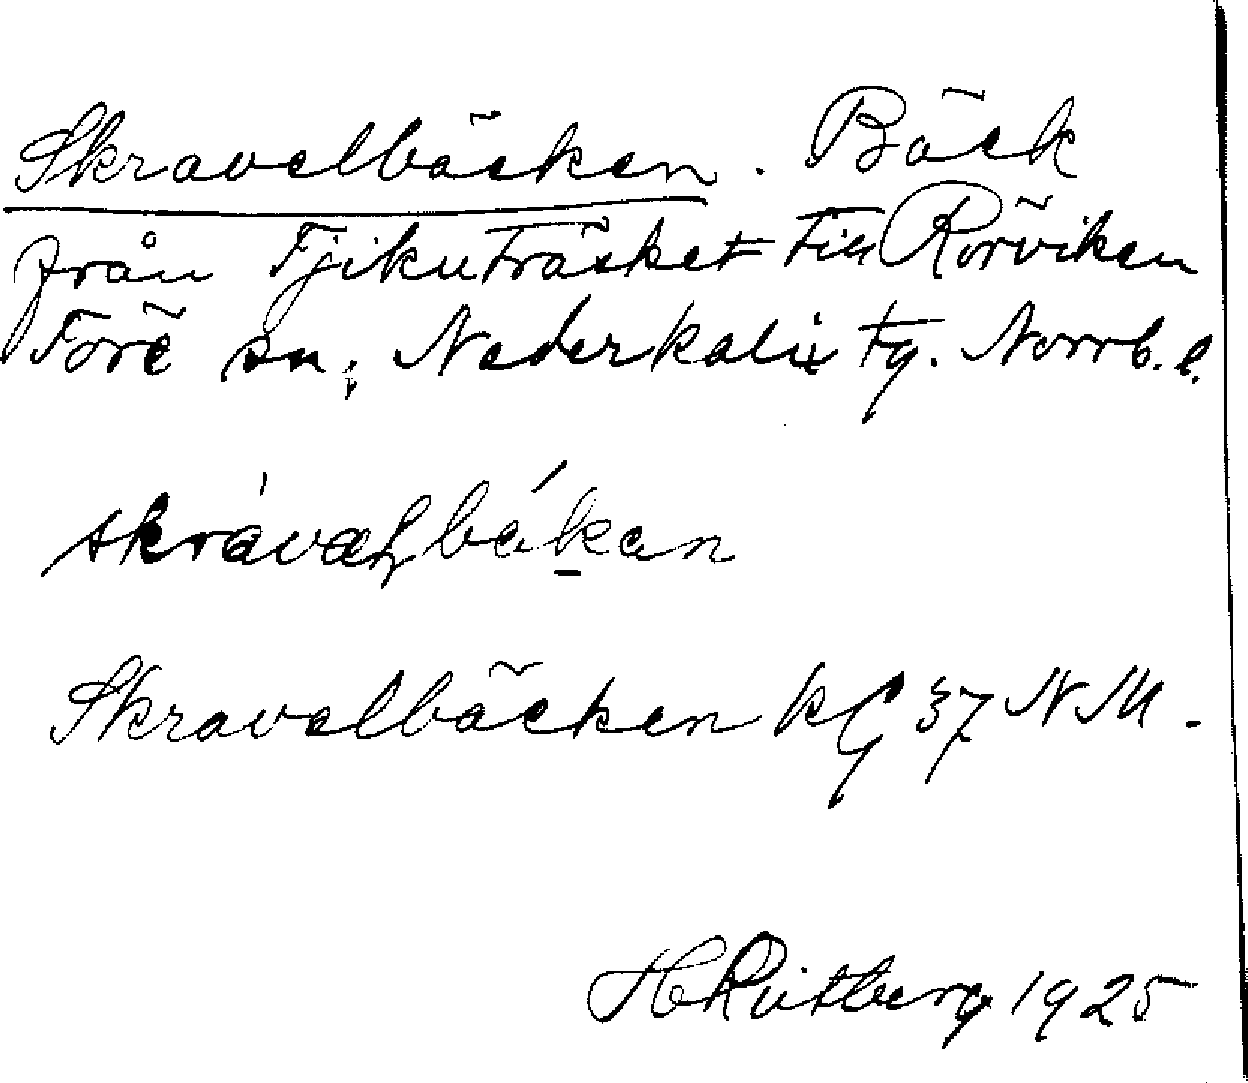 Skravelbäcken. Bäck
från Tjikuträsket till Rörviken
Töre sn, Nederkalix tg. Norrb. l.
skràvæḷbákan
Skravelbäcken kG 37 NM.
H Rutberg 1925